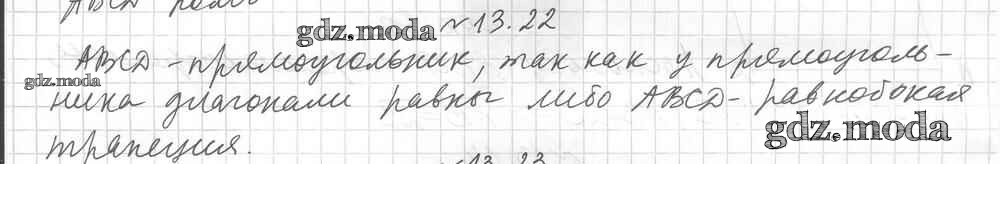 ABCD ромб
gdz.moda № 13.22
ABCD - прямоугольник, так как у прямоуголь-
gdz.moda
ника диагонали равны либо ABCD - равнобокая
gdz.moda
трапеция.
№13.23